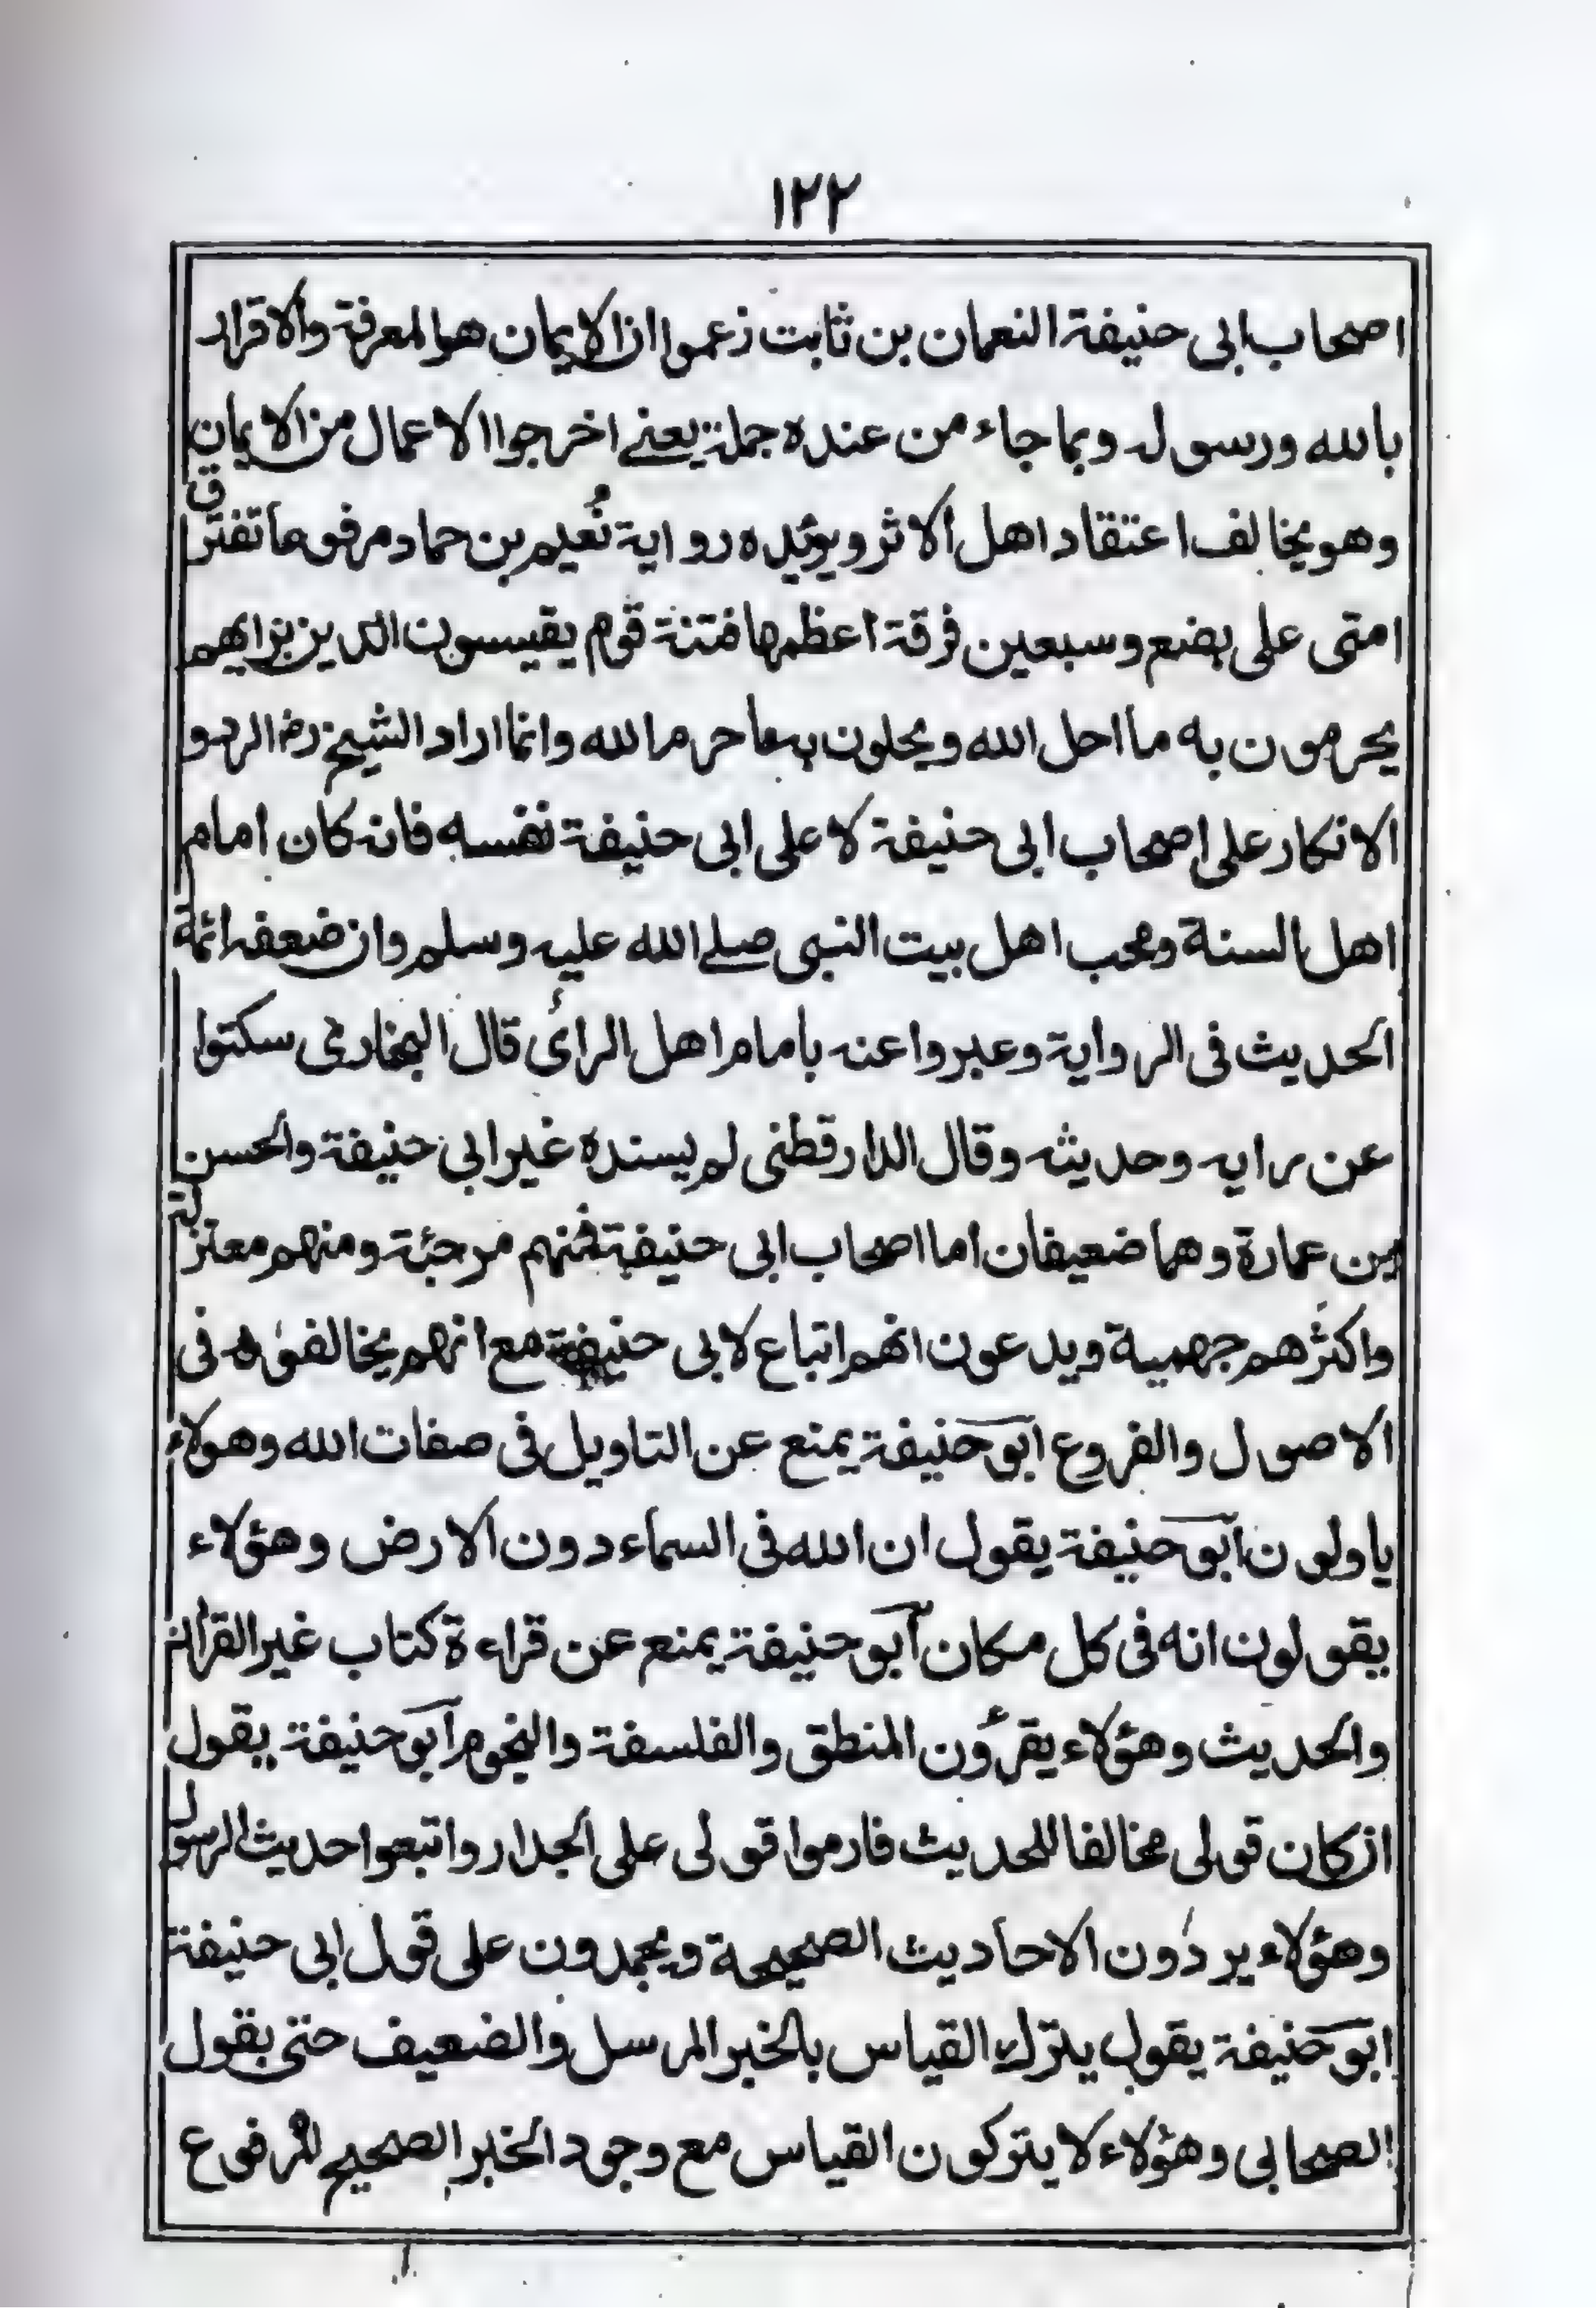 ١٢٢
اصحاب ابى حنيفة النعمان بن ثابت زعموا ان الايمان هو المعرفة والاقرار
بالله ورسوله وبما جاء من عنده جملة يعنے اخرجوا الاعمال من الايمان
وهو يخالف اعتقاد اهل الاثر ويوئيده رواية نُعيم بن حماد مرفوعا تفترق
امتى على بضع وسبعين فرقة اعظمها فتنة قوم يقيسون الدين برايهم
يحرمون به ما احل الله ويحلون به ما حرم الله وانما اراد الشيخ رضـ الرد و
الانكار على اصحاب ابى حنيفة لا على ابى حنيفة نفسه فانه كان امام
اهل السنة ومحب اهل بيت النبى صلے الله عليه وسلم وان ضعفه ائمة
الحديث فى الرواية وعبروا عنه بامام اهل الرأى قال البخارى سكتوا
عن رايه وحديثه وقال الدارقطنى لم يسنده غير ابى حنيفة والحسن
بن عمارة وهما ضعيفان اما اصحاب ابى حنيفة فمنهم مرجئة ومنهم معتزلة
واكثرهم جهمية ويدعون انهم اتباع لابى حنيفة مع انهم يخالفوه فى
الاصول والفروع ابو حنيفة يمنع عن التاويل فى صفات الله وهولاء
ياولون ابو حنيفة يقول ان الله فى السماء دون الارض وهؤلاء
يقولون انه فى كل مكان ابو حنيفة يمنع عن قراءة كتاب غير القران
والحديث وهؤلاء يقرؤن المنطق والفلسفة والنجوم ابو حنيفة يقول
ان كان قولى مخالفا للحديث فارموا قولى على الجدار واتبعوا حديث الرسول
وهؤلاء يردون الاحاديث الصحيحة ويجمدون على قول ابى حنيفة
ابو حنيفة يقول يترك القياس بالخبر المرسل والضعيف حتى بقول
الصحابى وهؤلاء لا يتركون القياس مع وجود الخبر الصحيح المرفوع